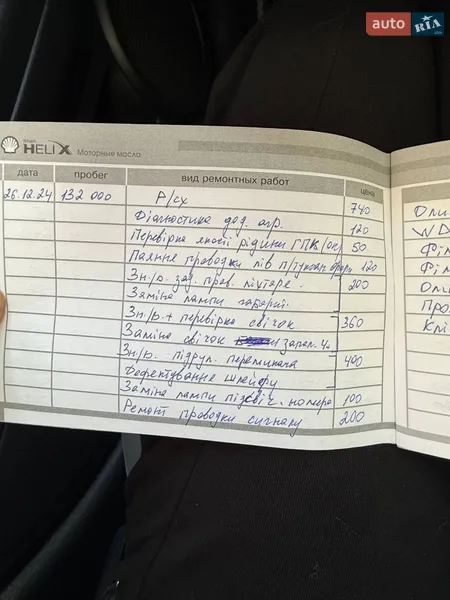 auto RIA
.com
HELIX Моторные масла
дата пробег вид ремонтных работ цена
26.12.24 132 000 Р/сх 740
Діагностика дод. агр. 120
Перевірка якості рідини ГПК/ок 50
Паяння проводки лів. п/туман. фари 120
Зн/р. зад. прав. ліхтаря 200
Заміна лампи габариті.
Зн/р. + перевірка свічок 360
Заміна свічок запал. 4
Зн/р. підрул. перемикача 400
Дефектування шлейфу
Заміна лампи підсвіч. номера 100
Ремонт проводки сигналу 200
Оли
WD
Філ
Філ
Оли
Про
Клі